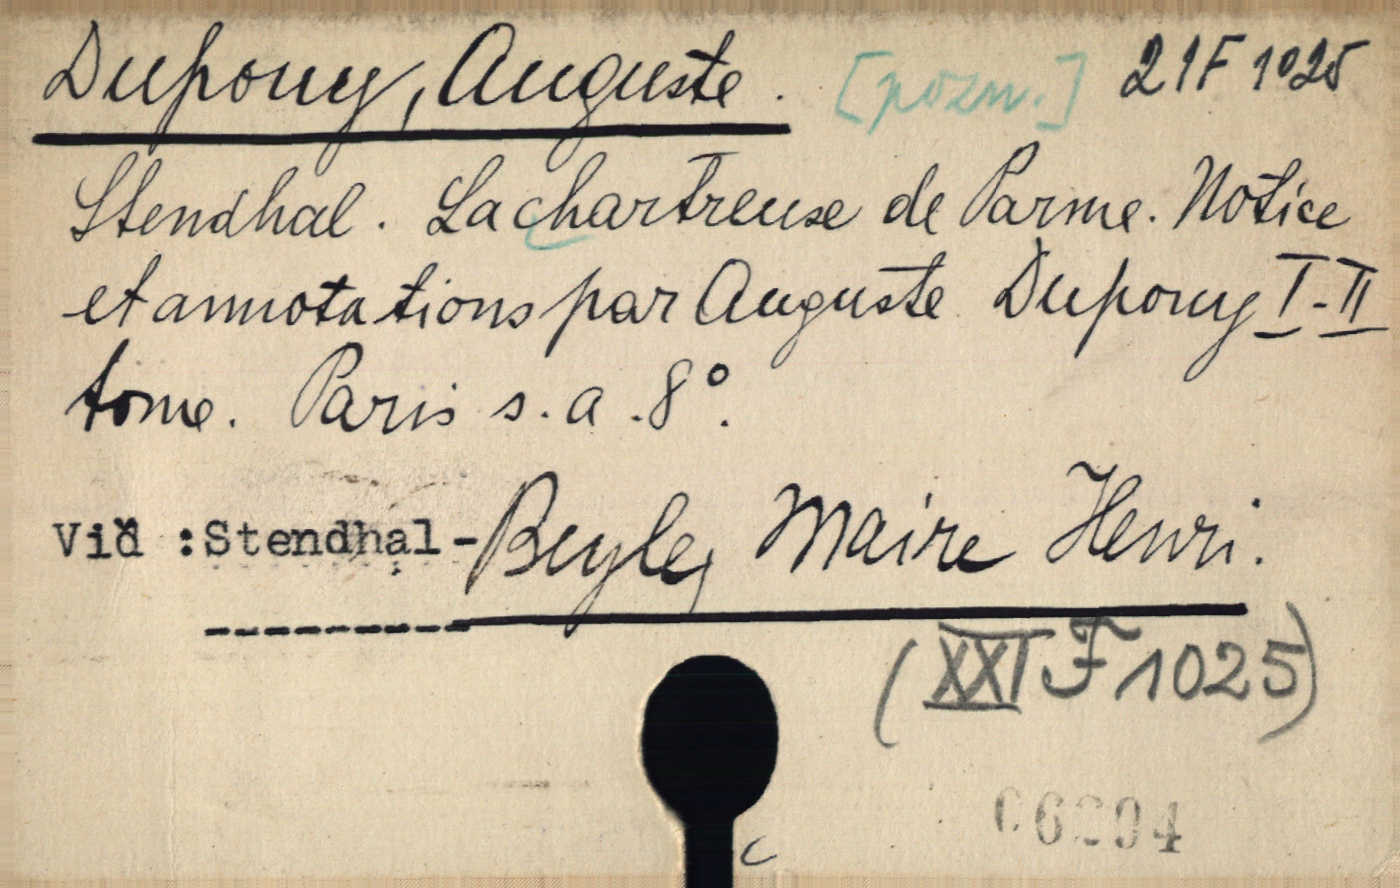 Dupouy, Auguste. [pozn.] 21F 1025
Stendhal. La chartreuse de Parme. Notice
et annotations par Auguste Dupouy I-II
tome. Paris s.a. 8°.
Viď :Stendhal-Beyle, Maire Henri.
(XXI F 1025)
c